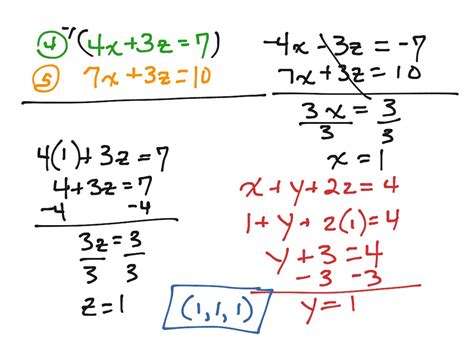 ④ -1(4x+3z=7)
⑤ 7x+3z=10
-4x-3z=-7
7x+3z=10
3x/3 = 3/3
x=1
4(1)+3z=7
4+3z=7
-4 -4
3z/3 = 3/3
z=1
x+y+2z=4
1+y+2(1)=4
y+3=4
-3 -3
y=1
(1,1,1)